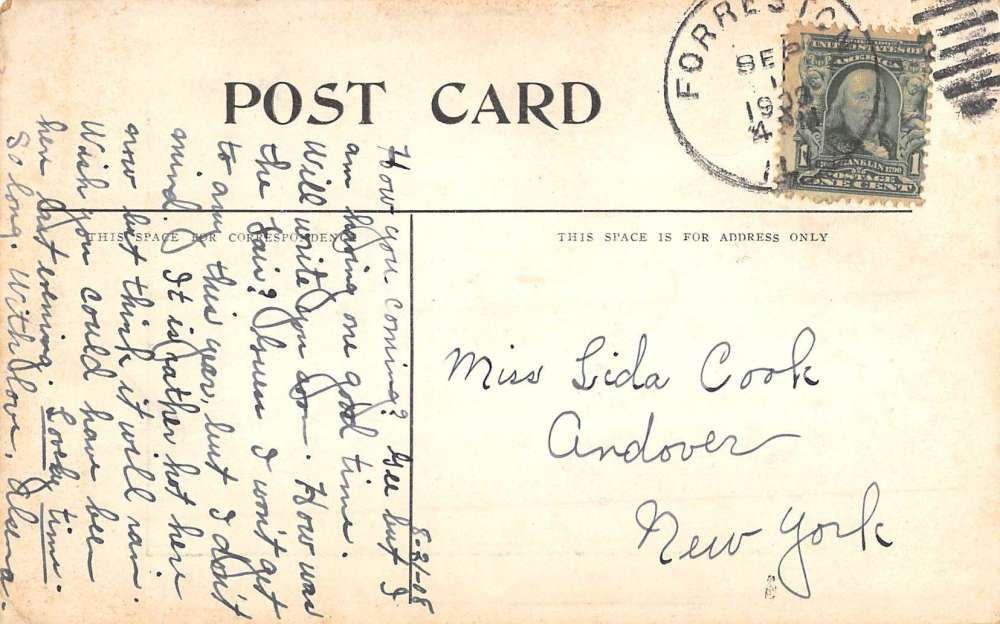 POST CARD
FORREST
SEP
1
1908
UNITED STATES OF
AMERICA
1
FRANKLIN 1790
1
POSTAGE
ONE CENT
THIS SPACE FOR CORRESPONDENCE
THIS SPACE IS FOR ADDRESS ONLY
8-31-08
How you coming? Gee but I
am having one good time.
Will write you soon. How was
the Fair? Guess I won't get
to any this year, but I don't
mind. It is rather hot here
now but think it will rain.
Wish you could have been
here last evening. Lovely time.
So long. With love,
Miss Lida Cook
Andover
New York